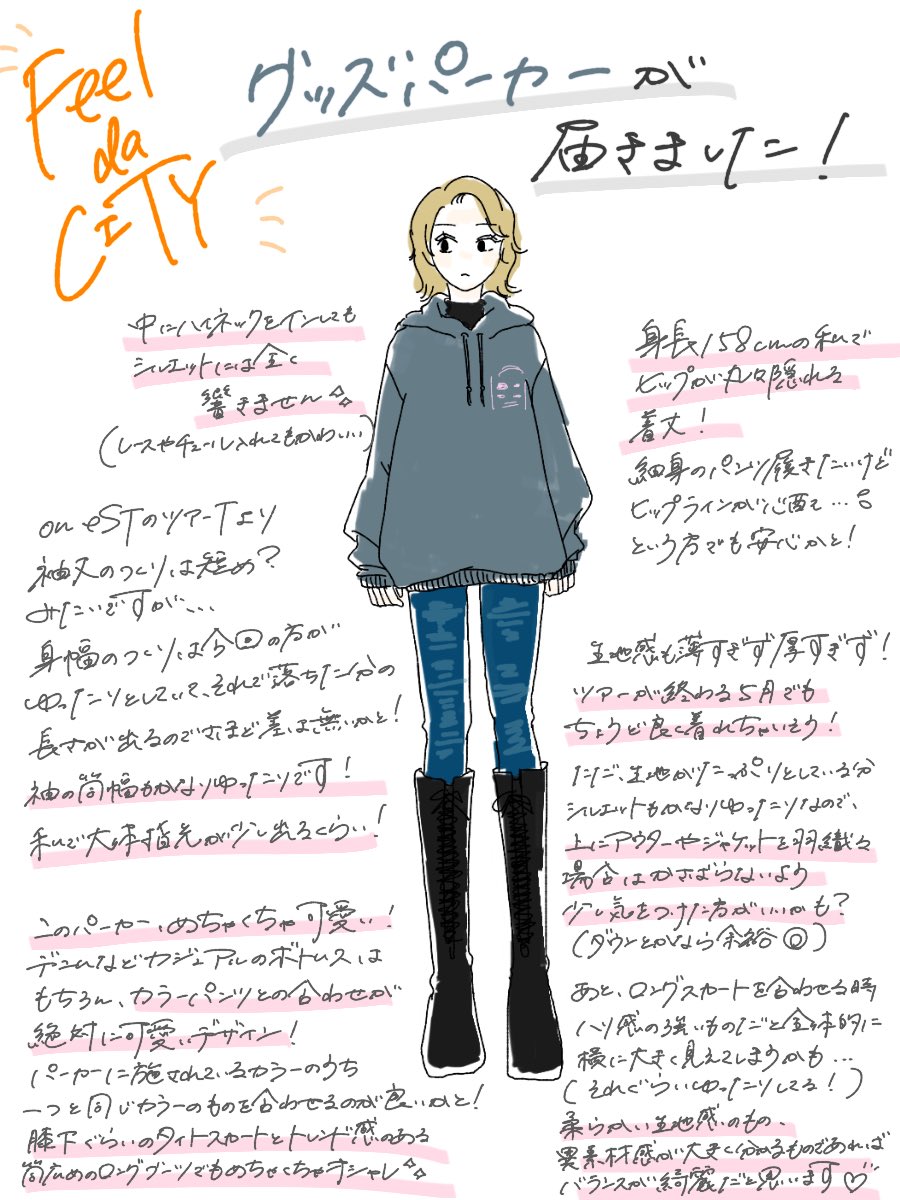 Feel
da
CITY
グッズパーカーが
届きました！
中にハイネックをインしても
シルエットには全く
響きません✧
(レースやチュール入れてもかわいい)
身長158cmの私で
ヒップが丸々隠れる
着丈！
細身のパンツ履きたいけど
ヒップラインが心配で…。
という方でも安心かと！
on eSTのツアーTより
袖丈のつくりは短め？
みたいですが、、、
身幅のつくりは今回の方が
ゆったりとしていて、それで落ちた分の
長さが出るのでさほど差は無いかと！
袖の筒幅もかなりゆったりです！
私で大体指先が少し出るくらい！
生地感も薄すぎず厚すぎず！
ツアーが終わる5月でも
ちょうど良く着れちゃいそう！
ただ、生地がたっぷりとしている分
シルエットもかなりゆったりなので、
上にアウターやジャケットを羽織る
場合はかさばらないよう
少し気をつけた方がいいかも？
(ダウンとかなら余裕◎)
このパーカー、めちゃくちゃ可愛い！
デニムなどカジュアルのボトムスは
もちろん、カラーパンツとの合わせが
絶対に可愛いデザイン！
パーカーに施されているカラーのうち
一つと同じカラーのものを合わせるのが良いかと！
膝下ぐらいのタイトスカートとトレンド感のある
筒広めのロングブーツでもめちゃくちゃオシャレ✧
あと、ロングスカートを合わせる時
ハリ感の強いものだと全体的に
横に大きく見えてしまうかも…
(それぐらいゆったりしてる！)
柔らかい生地感のもの、
異素材感が大きく分かるものであれば
バランスが綺麗だと思います♡